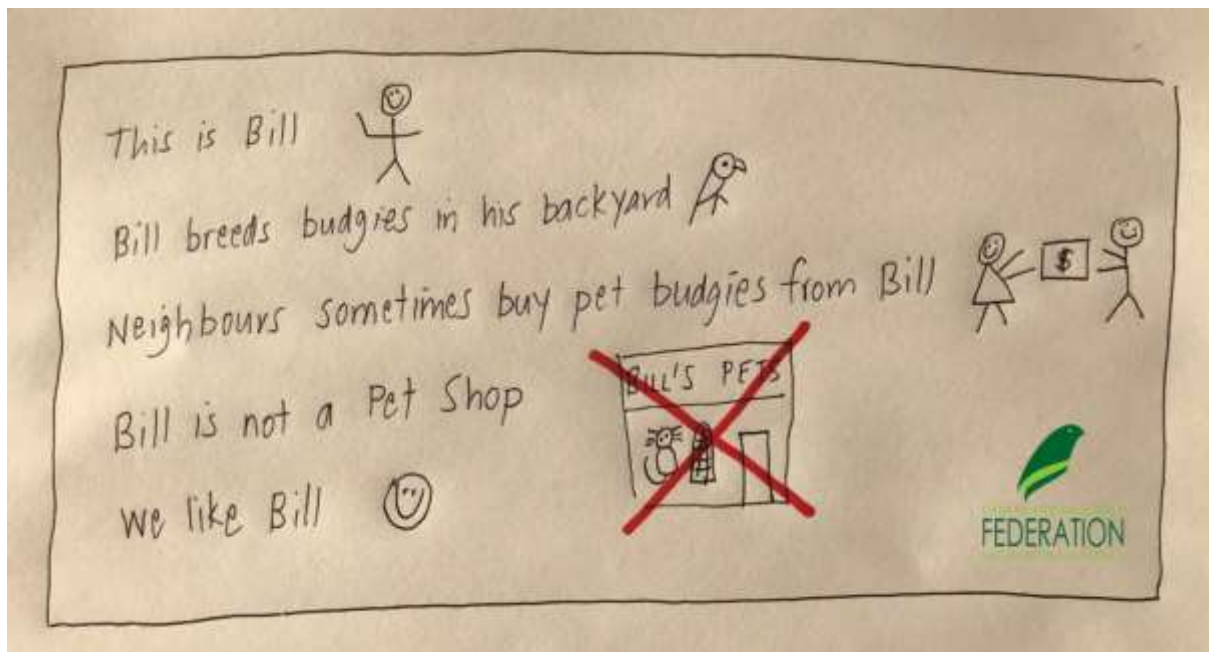 This is Bill
Bill breeds budgies in his backyard
Neighbours sometimes buy pet budgies from Bill
$
Bill is not a Pet Shop
BILL'S PETS
We like Bill
FEDERATION